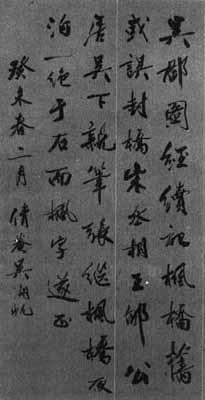 吳郡圖經續記楓橋舊
或誤封橋宋丞相王郇公
居吳下親筆張繼楓橋夜
泊一絕于石而楓字遂正
癸未春二月 倩菴吳湖帆